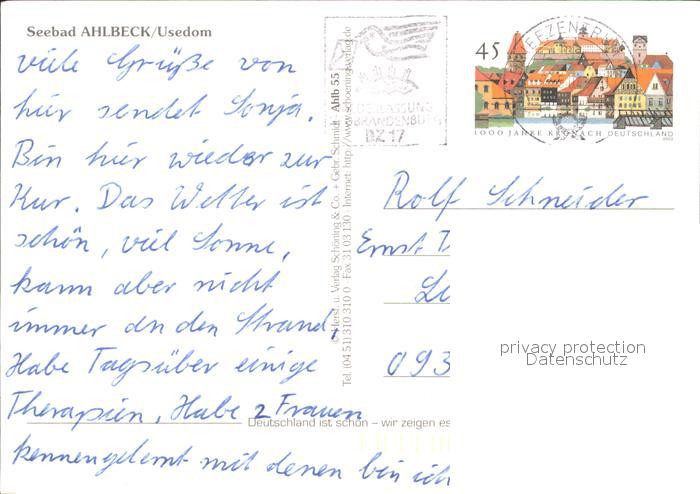 Seebad AHLBECK/Usedom
viele Grüße von
hier sendet Sonja.
Bin hier wieder zur
Kur. Das Wetter ist
schön, viel Sonne,
kann aber nicht
immer an den Strand,
Habe Tagsüber einige
Therapien, Habe 2 Frauen
kennengelernt mit denen bin ich
Deutschland ist schön – wir zeigen es
Tel. (04 51) 310 310 0 · Fax 31 03 130 · Internet: http://www.schoening-verlag.de
Verlag Schöning & Co. + Gebr. Schmidt · Ahlb 55
BRANDENBURG
BZ 17
45
1000 JAHRE KRONACH DEUTSCHLAND
2003
Rolf Schneider
Ernst
093
privacy protection
Datenschutz